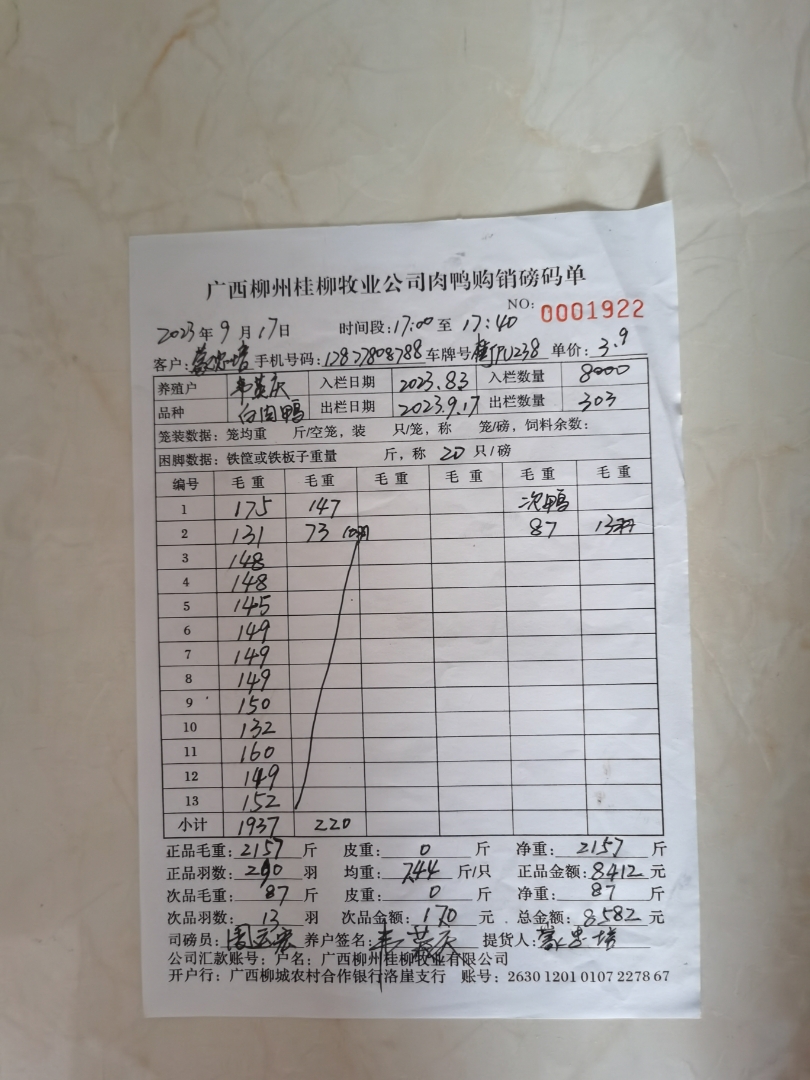 广西柳州桂柳牧业公司肉鸭购销磅码单
NO: 0001922
2023年9月17日 时间段:17:00至17:40
客户: 手机号码:12827808788 车牌号 桂JPU238 单价:3.9
养殖户 韦英庆 入栏日期 2023.8.3 入栏数量 8000
品种 白肉鸭 出栏日期 2023.9.17 出栏数量 303
笼装数据:笼均重 斤/空笼,装 只/笼,称 笼/磅,饲料余数:
困脚数据:铁筐或铁板子重量 斤,称 20 只/磅
编号 毛重 毛重 毛重 毛重 毛重 毛重
1 175 147 次鸭
2 131 73 10羽 87 13羽
3 148
4 148
5 145
6 149
7 149
8 149
9 150
10 132
11 160
12 149
13 152
小计 1937 220
正品毛重:2157斤 皮重:0斤 净重:2157斤
正品羽数:290羽 均重:7.44斤/只 正品金额:8412元
次品毛重:87斤 皮重:0斤 净重:87斤
次品羽数:13羽 次品金额:170元 总金额:8582元
司磅员: 养户签名: 提货人:
公司汇款账号:户名:广西柳州桂柳牧业有限公司
开户行:广西柳城农村合作银行洛崖支行 账号:2630 1201 0107 2278 67